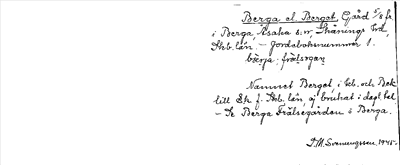 Berga el. Berget, Gård 5/8 fr.
i Berga, Asaka s:n, Skånings hd,
Skb. län. – Jordeboksnummer 1.
bærja: frälsgarn
Namnet Berget, i Eb. och Bek.
till Ek. f. Skb. län, ej brukat i dagl. tal
– Se Berga Frälsegården i Berga.
D.A. Svenungsson. 1945.